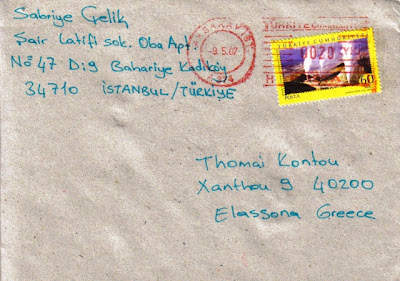 Sabriye Çelik
Şair Latifi sok. Oba Apt.
No 47 D:9 Bahariye Kadıköy
34710 İSTANBUL/TÜRKİYE
-9.5.07
TÜRKİYE CUMHURİYETİ
0020
60
POSTA
Thomai Kontou
Xanthou 9 40200
Elassona Greece